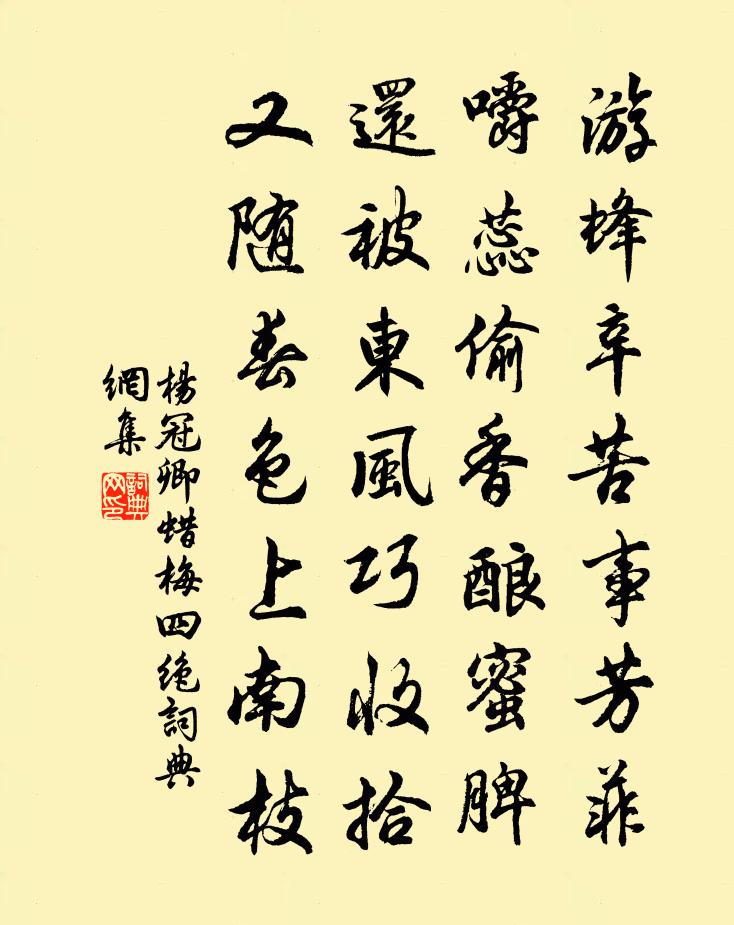 游蜂辛苦事芳菲
嚼蕊偷香酿蜜脾
還被東風巧收拾
又随春色上南枝
楊冠卿蜡梅四绝詞典
網集
詞典
网印